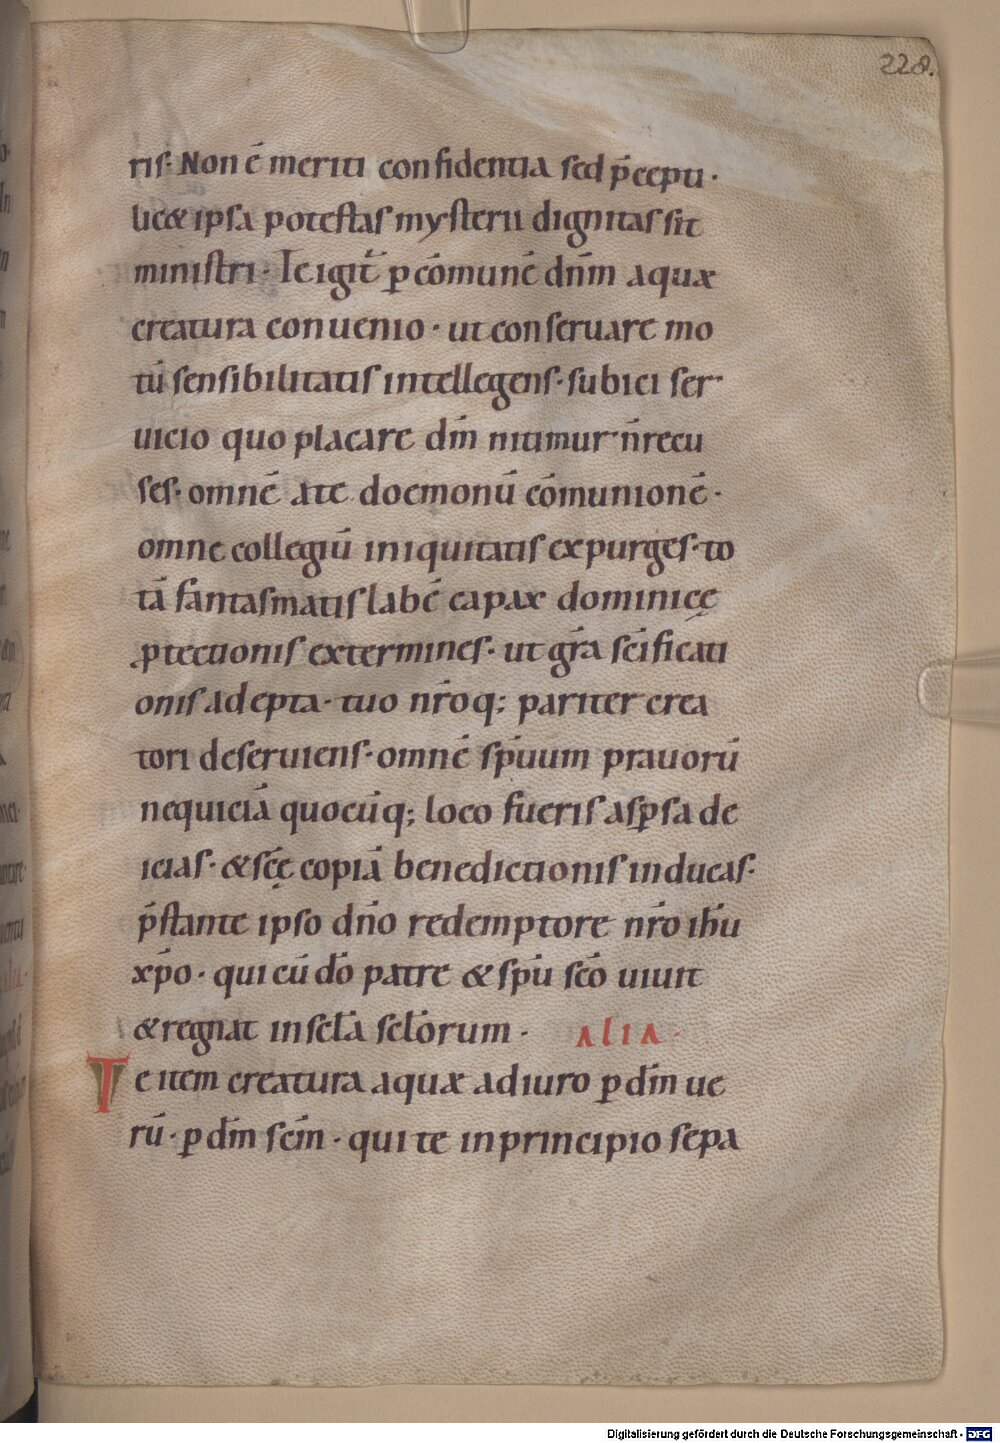 228.
ris· Non ē meriti confidentia sed p̄cepti·
lic& ipsa potestas mysterii dignitas sit
ministri· Te igit̄ ꝑ cōmunē dn̄m aquæ
creatura conuenio· ut conseruare mo
tū sensibilitatis intellegens· subici ser
uicio quo placare dm̄ nitimur n̄ recu
ses· omnē a te doemonū cōmunionē·
omne collegiū iniquitatis expurges· to
tā fantasmatis labē capax dominicę
ꝓtectionis extermines· ut gr̄a sc̄ificati
onis adepta· tuo nr̄oq; pariter crea
tori deseruiens· omnē sp̄uum prauorū
nequiciā quocūq; loco fueris asꝑsa de
icias· & sc̄ę copiā benedictionis inducas·
p̄stante ipso dn̄o redemptore nr̄o ih̄u
xp̄o· qui cū dō patre & sp̄u sc̄o uiuit
& regnat in scl̄a scl̄orum· ALIA·
Te item creatura aquæ adiuro ꝑ dm̄ ue
rū· ꝑ dm̄ sc̄m· qui te in principio sepa
Digitalisierung gefördert durch die Deutsche Forschungsgemeinschaft - DFG